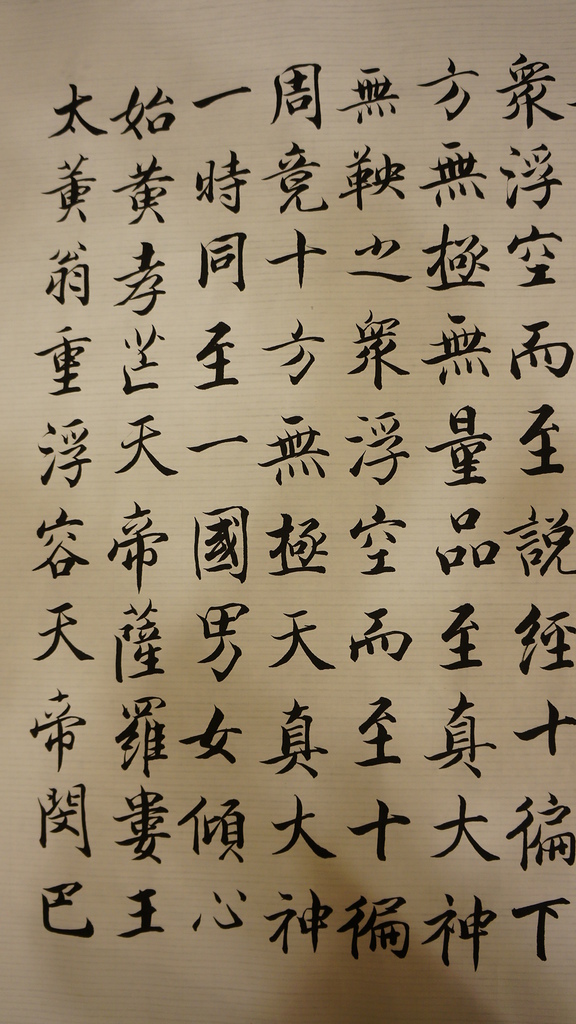 衆浮空而至説經十徧下
方無極無量品至真大神
無鞅之衆浮空而至十徧
周竟十方無極天真大神
一時同至一國男女傾心
始黃孝芒天帝薩羅婁王
太黃翁重浮容天帝閔巴